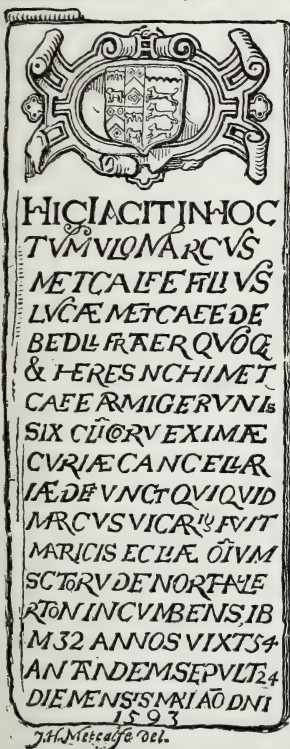 HIC IACIT IN HOC
TVMVLO MARCVS
METCALFE FILIVS
LVCÆ METCAFE DE
BEDLL FRAER QVOQE
& HERES NCHI MET
CAFE ARMIGER VNIs
SIX CLICORV EXIMÆ
CVRIÆ CANCELLAR
IÆ DEFVNCT QVI QVID
MARCVS VICARIUS FVIT
MARICIS ECLIÆ OIVM
SCTORV DE NORTALLE
RTON INCVMBENS, IB
M 32 ANNOS VIXT 54
AN TANDEM SEPVLT 24
DIE MENSIS MAI AO DNI
1593
J.H. Metcalfe del.